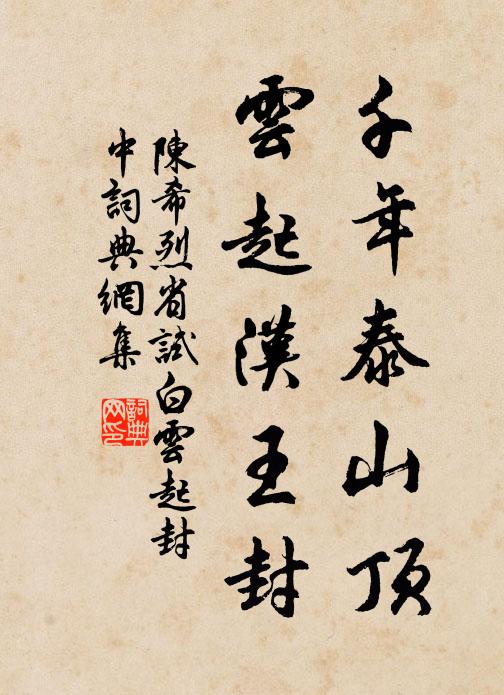 千年泰山頂
雲起漢王封
陳希烈省試白雲起封
中詞典網集
詞典网印